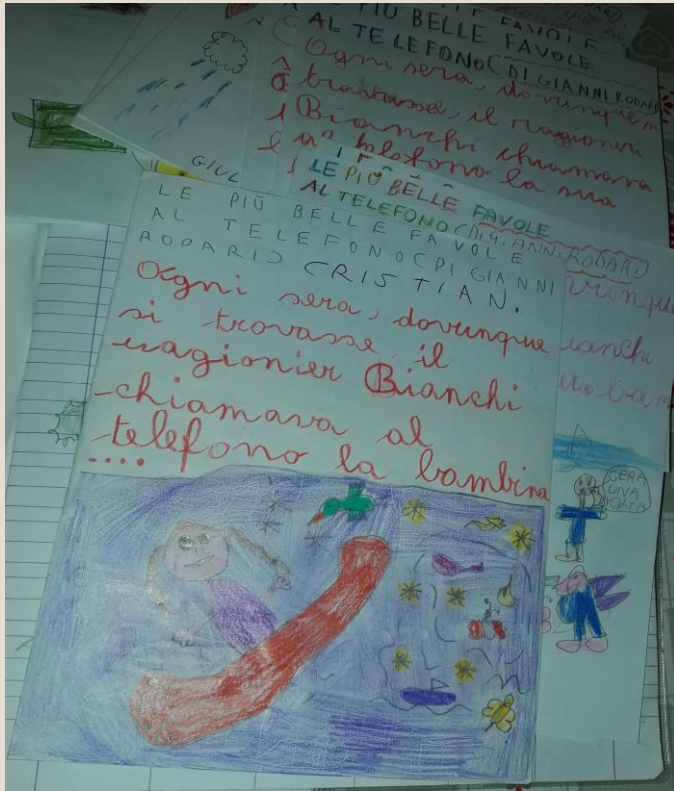 LE PIÙ BELLE FAVOLE
AL TELEFONO (DI GIANNI RODARI
Ogni sera, dovunque si
trovasse, il ragionieri
Bianchi chiamava
al telefono la sua
GIUL
LE PIÙ BELLE FAVOLE
AL TELEFONO (DI GIANNI RODARI)
LE PIÙ BELLE FAVOLE
AL TELEFONO (DI GIANNI
RODARI) CRISTIAN.
Ogni sera, dovunque
si trovasse il
ragionier Bianchi
chiamava al
telefono la bambina
....
C'ERA
UNA
VOLTA